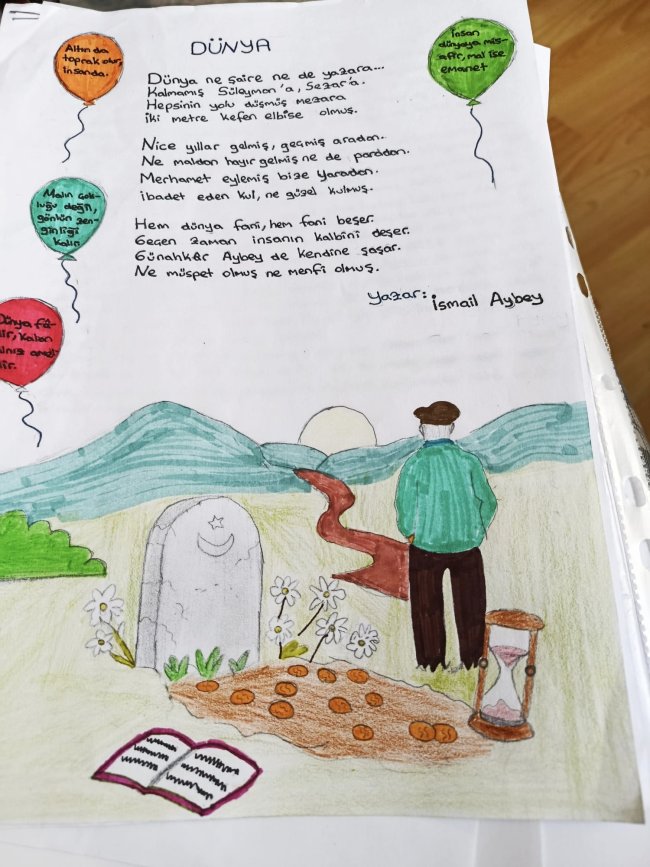 DÜNYA
Dünya ne şaire ne de yazara...
Kalmamış Süleyman'a, Sezar'a.
Hepsinin yolu düşmüş mezara
iki metre kefen elbise olmuş.
Nice yıllar gelmiş, geçmiş aradan.
Ne maldan hayır gelmiş ne de paradan.
Merhamet eylemiş bize Yaradan.
ibadet eden kul, ne güzel kulmuş.
Hem dünya fani, hem fani beşer.
Geçen zaman insanın kalbini deşer.
Günahkâr Aybey de kendine şaşar.
Ne müspet olmuş ne menfi olmuş.
Yazar: İsmail Aybey
Altın da
toprak olur,
insanda.
İnsan
dünyaya mis-
afir, mal ise
emanet
Malın çok-
luğu değil,
gönlün zen-
ginliği
kalır.
Dünya fâ-
kalan